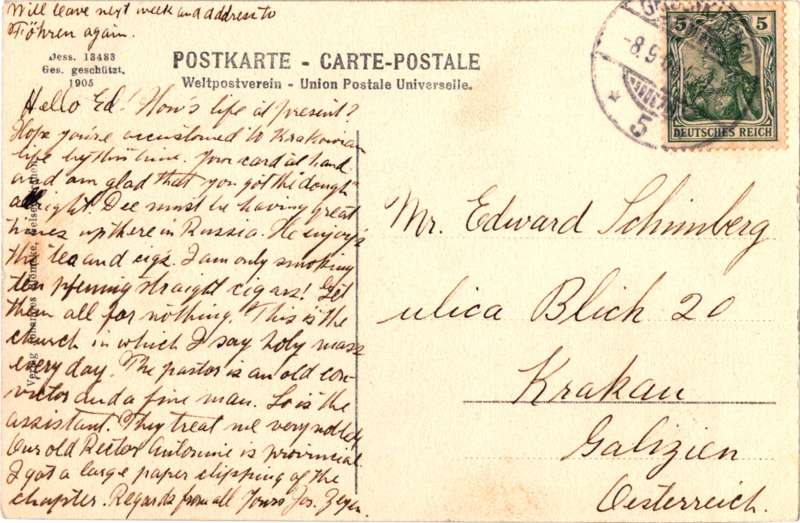 Will leave next week and address to
Föhren again.
Dess. 13483
Ges. geschützt.
1905
POSTKARTE - CARTE-POSTALE
Weltpostverein - Union Postale Universelle.
5 5
DEUTSCHES REICH
-8.9.
5
Hello Ed! How's life at present?
Hope you're accustomed to Krakovian
life by this time. Your card at hand
and am glad that you got the "dough"
alright. Dee must be having great
times up there in Russia. He enjoys
the tea and cigs. I am only smoking
ten pfennig straight cigars! Get
them all for nothing. This is the
church in which I say holy mass
every day. The pastor is an old con-
victor and a fine man. So is the
assistant. They treat me very nobly.
Our old Rector Antonine is provincial.
I got a large paper clipping of the
chapter. Regards from all Yours Jos. Zeyen.
Verlag Johannes
Mr. Edward Schimberg
ulica Blich 20
Krakau
Galizien
Oesterreich.